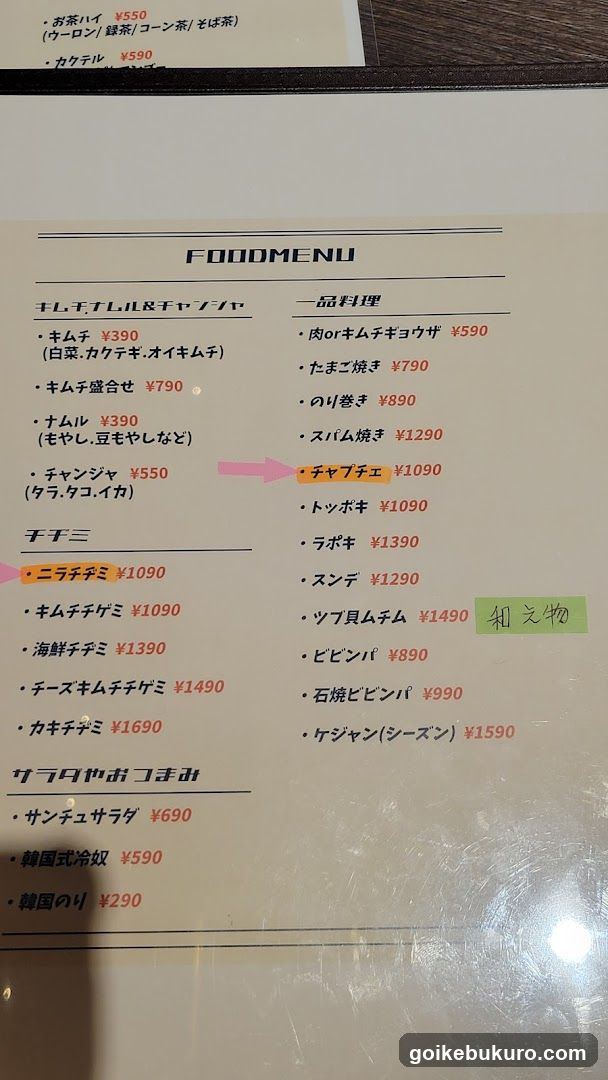 ・お茶ハイ ¥550
(ウーロン/ 緑茶/コーン茶/そば茶)
・カクテル ¥590
FOODMENU
キムチ.ナムル&チャンジャ
・キムチ ¥390
(白菜.カクテギ.オイキムチ)
・キムチ盛合せ ¥790
・ナムル ¥390
(もやし.豆もやしなど)
・チャンジャ ¥550
(タラ.タコ.イカ)
チヂミ
・ニラチヂミ ¥1090
・キムチチゲミ ¥1090
・海鮮チヂミ ¥1390
・チーズキムチチゲミ ¥1490
・カキチヂミ ¥1690
サラダやおつまみ
・サンチュサラダ ¥690
・韓国式冷奴 ¥590
・韓国のり ¥290
一品料理
・肉orキムチギョウザ ¥590
・たまご焼き ¥790
・のり巻き ¥890
・スパム焼き ¥1290
・チャプチェ ¥1090
・トッポキ ¥1090
・ラポキ ¥1390
・スンデ ¥1290
・ツブ貝ムチム ¥1490 和え物
・ビビンパ ¥890
・石焼ビビンパ ¥990
・ケジャン(シーズン) ¥1590
goikebukuro.com